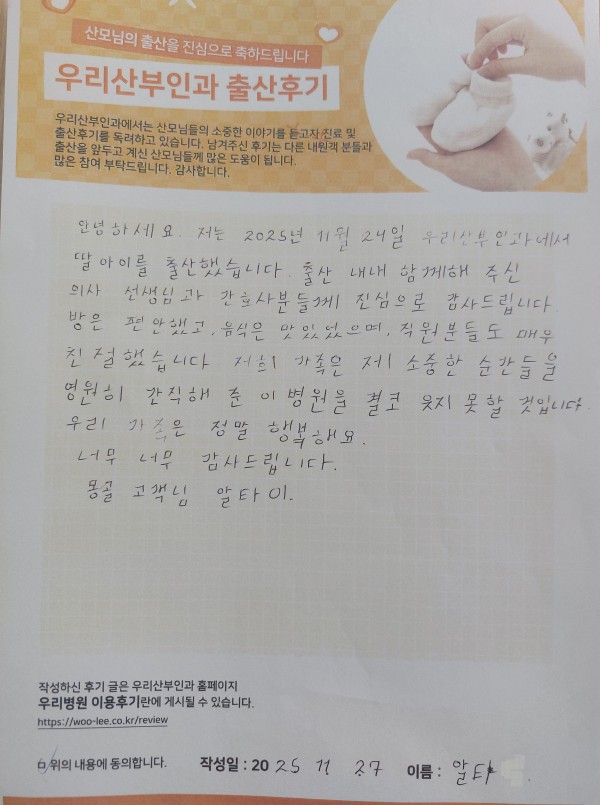 산모님의 출산을 진심으로 축하드립니다
우리산부인과 출산후기
우리산부인과에서는 산모님들의 소중한 이야기를 듣고자 진료 및
출산후기를 독려하고 있습니다. 남겨주신 후기는 다른 내원객 분들과
출산을 앞두고 계신 산모님들께 많은 도움이 됩니다.
많은 참여 부탁드립니다. 감사합니다.
안녕하세요. 저는 2025년 11월 24일 우리산부인과에서
딸 아이를 출산했습니다. 출산 내내 함께해 주신
의사 선생님과 간호사분들께 진심으로 감사드립니다.
방은 편안했고, 음식은 맛있었으며, 직원분들도 매우
친절했습니다 저희 가족은 제 소중한 순간들을
영원히 간직해 준 이 병원을 결코 잊지 못할 것입니다.
우리 가족은 정말 행복해요.
너무 너무 감사드립니다.
몽골 고객님 알타이.
작성하신 후기 글은 우리산부인과 홈페이지
우리병원 이용후기란에 게시될 수 있습니다.
https://woo-lee.co.kr/review
위의 내용에 동의합니다. 작성일 : 20 25 11 27 이름 : 알타